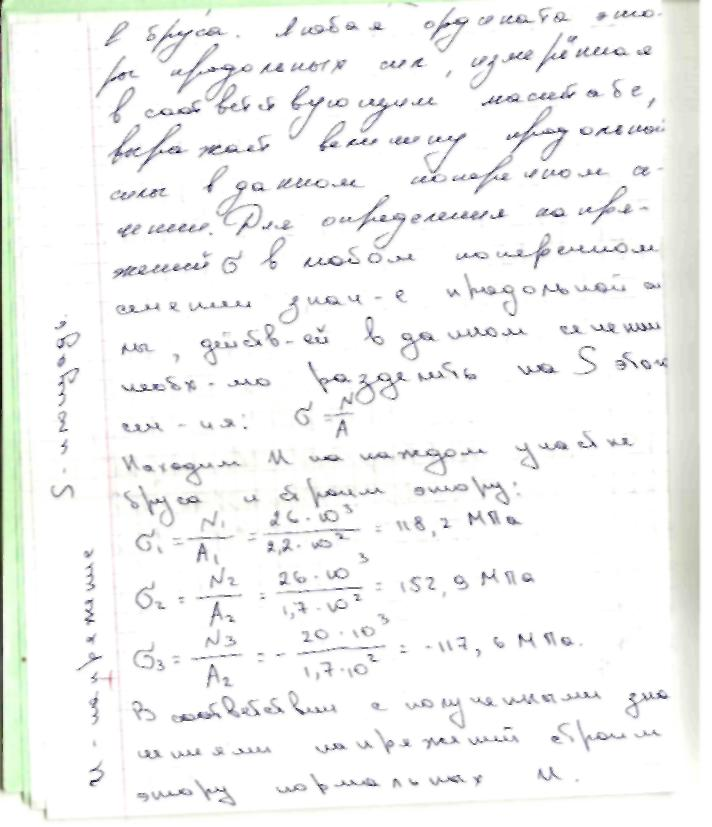 в бруса. Любая ордината эпю-
ры продольных сил, измеренная
в соответствующем масштабе,
выражает величину продольной
силы в данном поперечном се-
чении. Для определения напря-
жений σ в любом поперечном
сечении знач-е продольной си
лы, действ-ей в данном сечении
необх-мо разделить на S этого
сеч-ия: σ = N/A
Находим И на каждом участке
бруса и строим эпюру:
σ₁ = N₁/A₁ = 26·10³/2,2·10² = 118,2 МПа
σ₂ = N₂/A₂ = 26·10³/1,7·10² = 152,9 МПа
σ₃ = N₃/A₂ = -20·10³/1,7·10² = -117,6 МПа.
В соответствии с полученными зна
чениями напряжений строим
эпюру нормальных И.
S - площадь.
И - напряжение